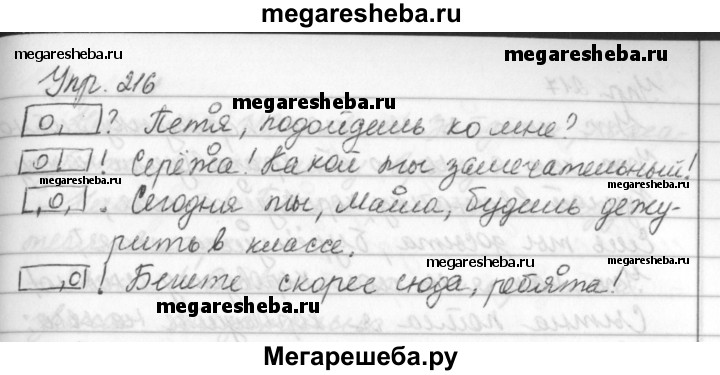 megaresheba.ru
megaresheba.ru
megaresheba.ru
Упр. 216
megaresheba.ru
о, ? Петя, подойдёшь ко мне?
megaresheba.ru
о! ! Серёжа! Какой ты замечательный!
megaresheba.ru
megaresheba.ru
,о, . Сегодня ты, Маша, будешь дежу-
рить в классе.
megaresheba.ru
,о ! Бегите скорее сюда, ребята!
megaresheba.ru
megaresheba.ru
Мегарешеба.ру